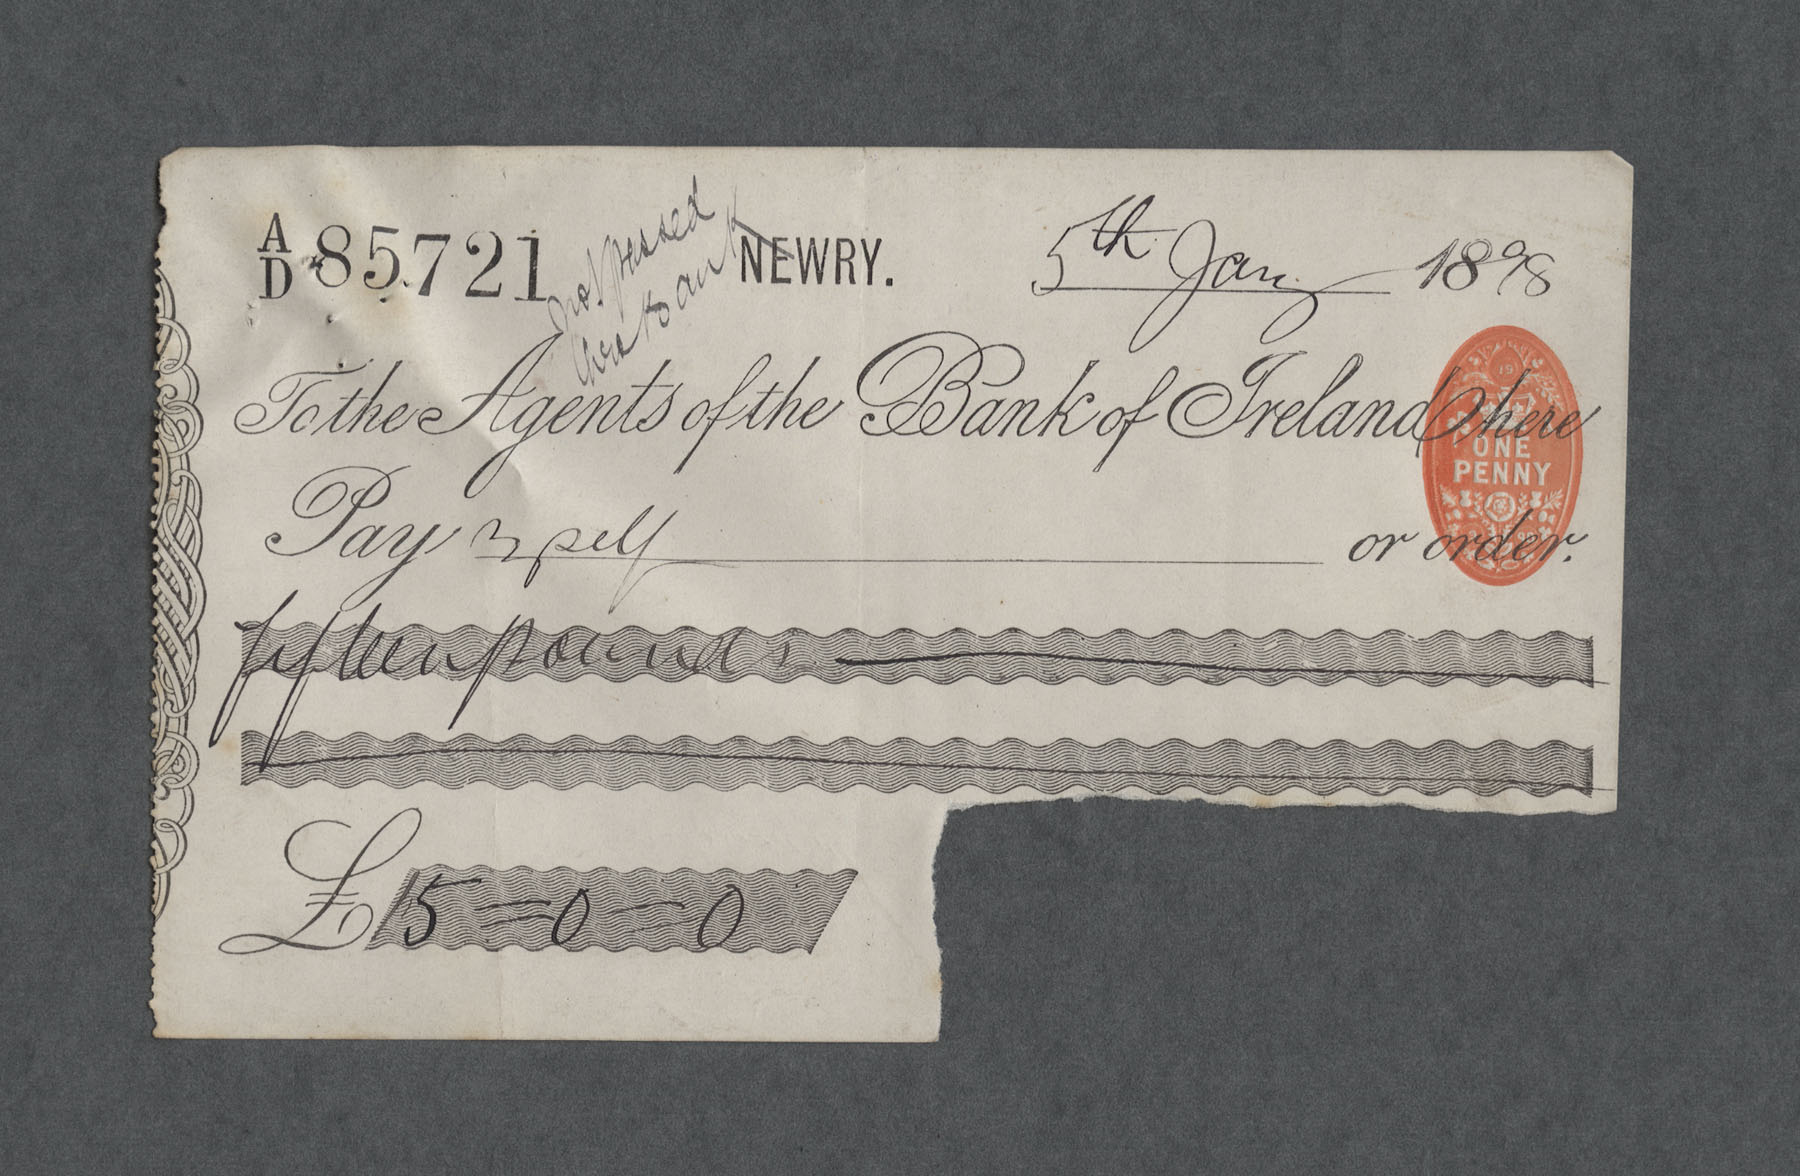 A/D 85721 NEWRY. 5th Jany 1898
not passed
thro Bank
To the Agents of the Bank of Ireland here
19
ONE
PENNY
Pay myself or order.
fifteen pounds
£15=0-0